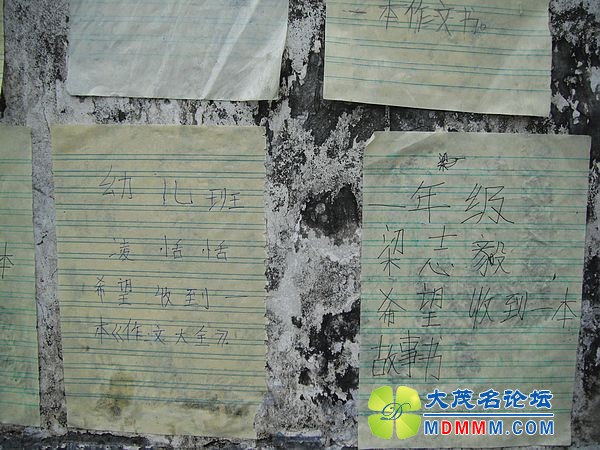 一本作文书。
幼儿班
凌恬恬
希望收到一
本《作文大全》。
本
一年级
梁志毅
希望收到一本
故事书
大茂名论坛
MDMMM.COM